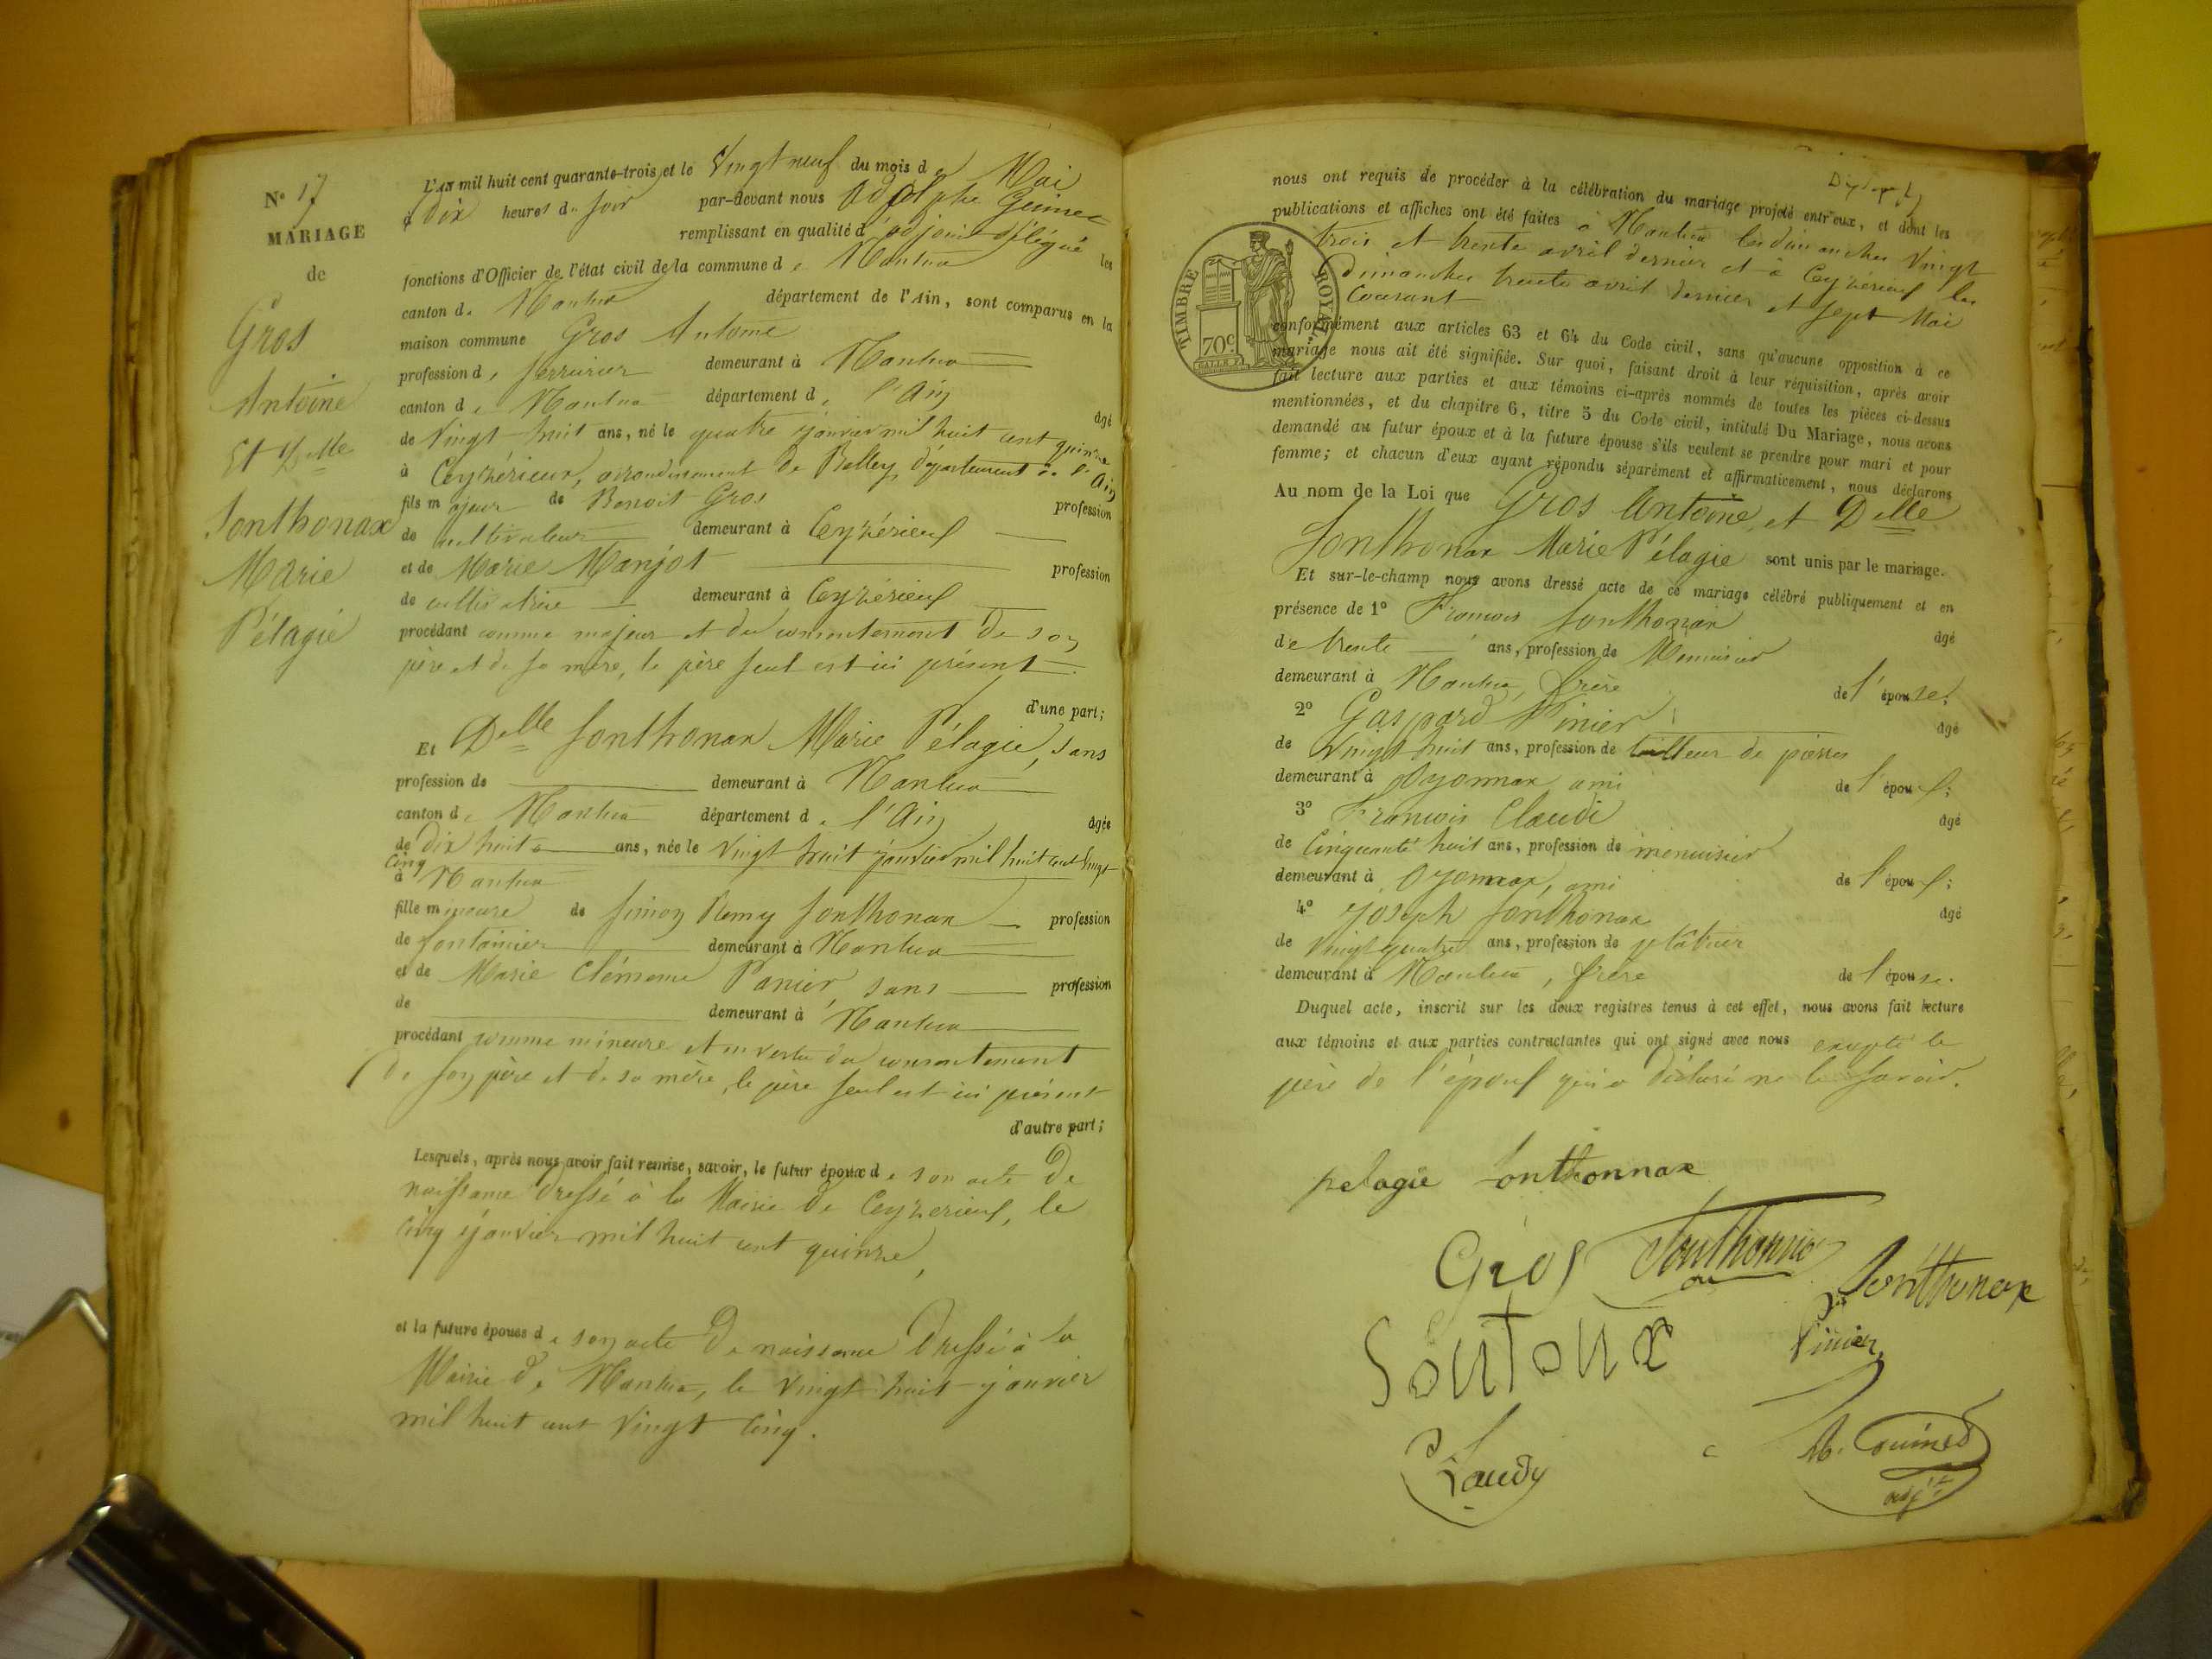 N° 17
MARIAGE
de
Gros
Antoine
Et Delle
Sonthonax
Marie
Pélagie
L'AN mil huit cent quarante-trois et le Vingt neuf du mois de Mai
à Dix heures du soir par-devant nous Adolphe Guinet
remplissant en qualité d'adjoint délégué les
fonctions d'Officier de l'état civil de la commune de Nantua
canton de Nantua département de l'Ain, sont comparus en la
maison commune Gros Antoine
profession de serrurier demeurant à Nantua
canton de Nantua département de l'Ain âgé
de Vingt huit ans, né le quatre janvier mil huit cent quinze
à Ceyzérieux, arrondissement de Belley, département de l'Ain
fils majeur de Benoit Gros profession
de cultivateur demeurant à Ceyzérieux
et de Marie Manjot profession
de cultivatrice demeurant à Ceyzérieux
procédant comme majeur et du consentement de son
père et de sa mère, le père seul est ici présent
d'une part;
Et Delle Sonthonax Marie Pélagie, sans
profession de demeurant à Nantua
canton de Nantua département de l'Ain âgée
de Dix huit ans, née le vingt huit janvier mil huit cent vingt
cinq
à Nantua
fille mineure de Simon Remy Sonthonax profession
de fontainier demeurant à Nantua
et de Marie Clémence Panier sans profession
de demeurant à Nantua
procédant comme mineure et en vertu du consentement
de son père et de sa mère, le père seul est ici présent
d'autre part;
Lesquels, après nous avoir fait remise, savoir, le futur époux de son acte de
naissance dressé à la Mairie de Ceyzerieux, le
cinq janvier mil huit cent quinze,
et la future épouse de son acte de naissance dressé à la
Mairie de Nantua, le vingt huit janvier
mil huit cent vingt cinq.
nous ont requis de procéder à la célébration du mariage projeté entr'eux, et dont les
publications et affiches ont été faites à Nantua les dimanches vingt
trois et trente avril dernier et à Ceyzérieux les
dimanches trente avril dernier et sept Mai
courant
TIMBRE ROYAL
70c
conformément aux articles 63 et 64 du Code civil, sans qu'aucune opposition à ce
mariage nous ait été signifiée. Sur quoi, faisant droit à leur réquisition, après avoir
fait lecture aux parties et aux témoins ci-après nommés de toutes les pièces ci-dessus
mentionnées, et du chapitre 6, titre 5 du Code civil, intitulé Du Mariage, nous avons
demandé au futur époux et à la future épouse s'ils veulent se prendre pour mari et pour
femme; et chacun d'eux ayant répondu séparément et affirmativement, nous déclarons
Au nom de la Loi que Gros Antoine, et Delle
Sonthonax Marie Pélagie sont unis par le mariage.
Et sur-le-champ nous avons dressé acte de ce mariage célébré publiquement et en
présence de 1° François Sonthonax âgé
de trente ans, profession de Menuisier
demeurant à Nantua, frère de l'épouse;
2° Gaspard Pinier âgé
de Vingt huit ans, profession de tailleur de pierres
demeurant à Oyonnax, ami de l'époux;
3° François Claudi âgé
de Cinquante huit ans, profession de menuisier
demeurant à Oyonnax, ami de l'époux;
4° Joseph Sonthonax âgé
de vingt quatre ans, profession de plâtrier
demeurant à Nantua, frère de l'épouse.
Duquel acte, inscrit sur les deux registres tenus à cet effet, nous avons fait lecture
aux témoins et aux parties contractantes qui ont signé avec nous excepté le
père de l'époux qui a déclaré ne le savoir.
pelagie Sonthonnax
Gros Sonthonnax
Sonthonax
Pinier
Soutoux
Laudy
Guinet
adjt